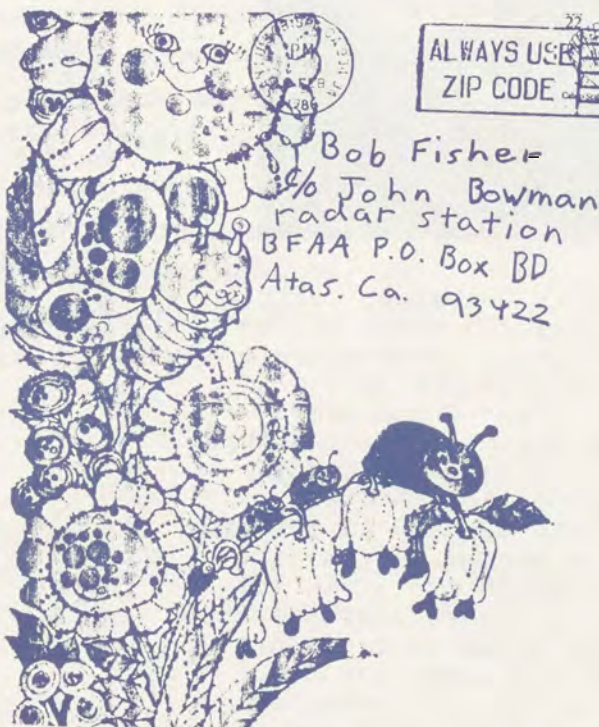 PM
FEB
ALWAYS USE
ZIP CODE
Bob Fisher
c/o John Bowman
radar station
BFAA P.O. Box BD
Atas. Ca. 93422